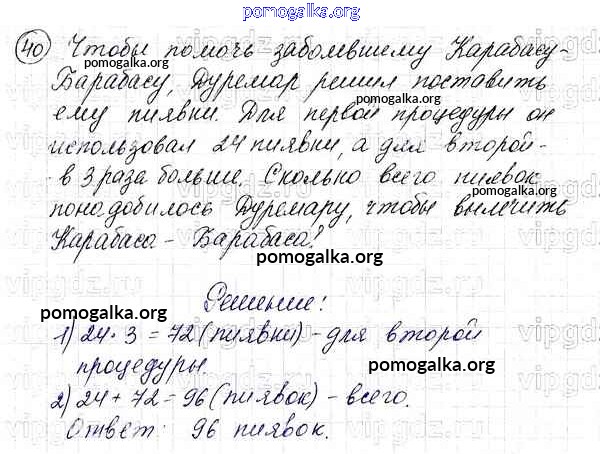 pomogalka.org
40 Чтобы помочь заболевшему Карабасу-
pomogalka.org
Барабасу, Дуремар решил поставить
pomogalka.org
ему пиявки. Для первой процедуры он
использовал 24 пиявки, а для второй -
- в 3 раза больше. Сколько всего пиявок
pomogalka.org
понадобилось Дуремару, чтобы вылечить
Карабаса - Барабаса?
pomogalka.org
Решение:
pomogalka.org
1) 24 · 3 = 72 (пиявки) - для второй
процедуры.
pomogalka.org
2) 24 + 72 = 96 (пиявок) - всего.
Ответ: 96 пиявок.
pomogalka.org